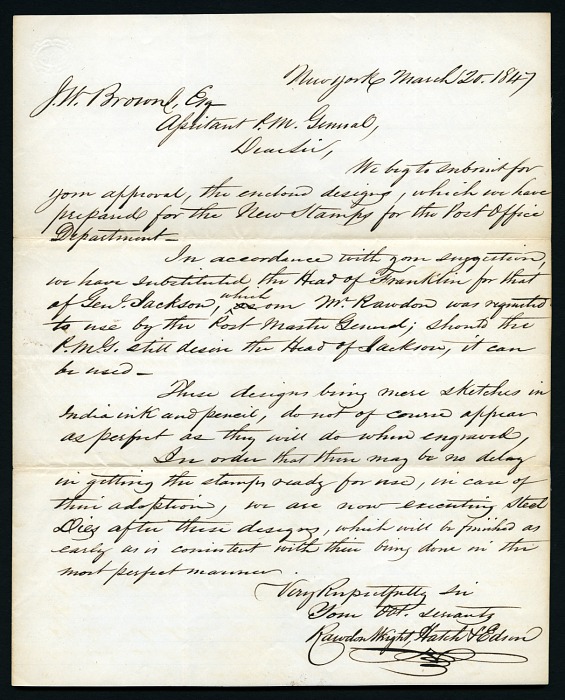 New York March 20. 1847
J. W. Brown, Esq
Assistant P. M. General,
Dear Sir,
We beg to submit for
your approval, the enclosed designs, which we have
prepared for the New Stamps for the Post Office
Department —
In accordance with your suggestion,
we have substituted the Head of Franklin for that
of Genl. Jackson, which our Mr. Rawdon was requested
to use by the Post Master General; should the
P.M.G. still desire the Head of Jackson, it can
be used —
These designs being mere sketches in
India ink and pencil, do not of course appear
as perfect as they will do when engraved,
In order that there may be no delay
in getting the stamps ready for use, in case of
their adoption, we are now executing Steel
Dies after these designs, which will be finished as
early as is consistent with their being done in the
most perfect manner.
Very Respectfully Sir
Your Obt. Servants
Rawdon, Wright, Hatch & Edson